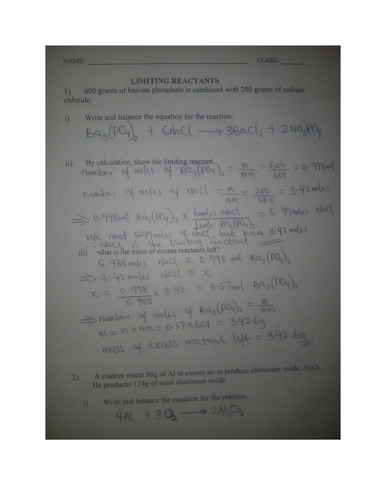 NAME: CLASS:
LIMITING REACTANTS
1) 600 grams of barium phosphate is combined with 200 grams of sodium
chloride.
i) Write and balance the equation for the reaction:
Ba₃(PO₄)₂ + 6NaCl → 3BaCl₂ + 2Na₃PO₄
ii). By calculation, show the limiting reactant
number of moles of Ba₃(PO₄)₂ = m/mm = 600/601 = 0.998mol
number of moles of NaCl = m/mm = 200/58.5 = 3.42moles
⇒ 0.998mol Ba₃(PO₄)₂ × 6moles NaCl / 1mole Ba₃(PO₄)₂ = 5.99moles NaCl
We need 5.99moles of NaCl, but have 3.42moles
∴ NaCl is the limiting reactant
iii) what is the mass of excess reactants left?
5.988moles NaCl ≡ 0.998mol Ba₃(PO₄)₂
⇒ 3.42moles NaCl ≡ x
x = 0.998/5.988 × 3.42 = 0.57mol Ba₃(PO₄)₂
⇒ number of moles of Ba₃(PO₄)₂ = m/mm
m = n × mm = 0.57×601 = 342.6g
mass of excess reactant left = 342.6g
2) A student reacts 88g of Al in excess air to produce aluminum oxide, Al₂O₃.
He produces 124g of solid aluminum oxide.
i) Write and balance the equation for the reaction.
4Al + 3O₂ → 2Al₂O₃